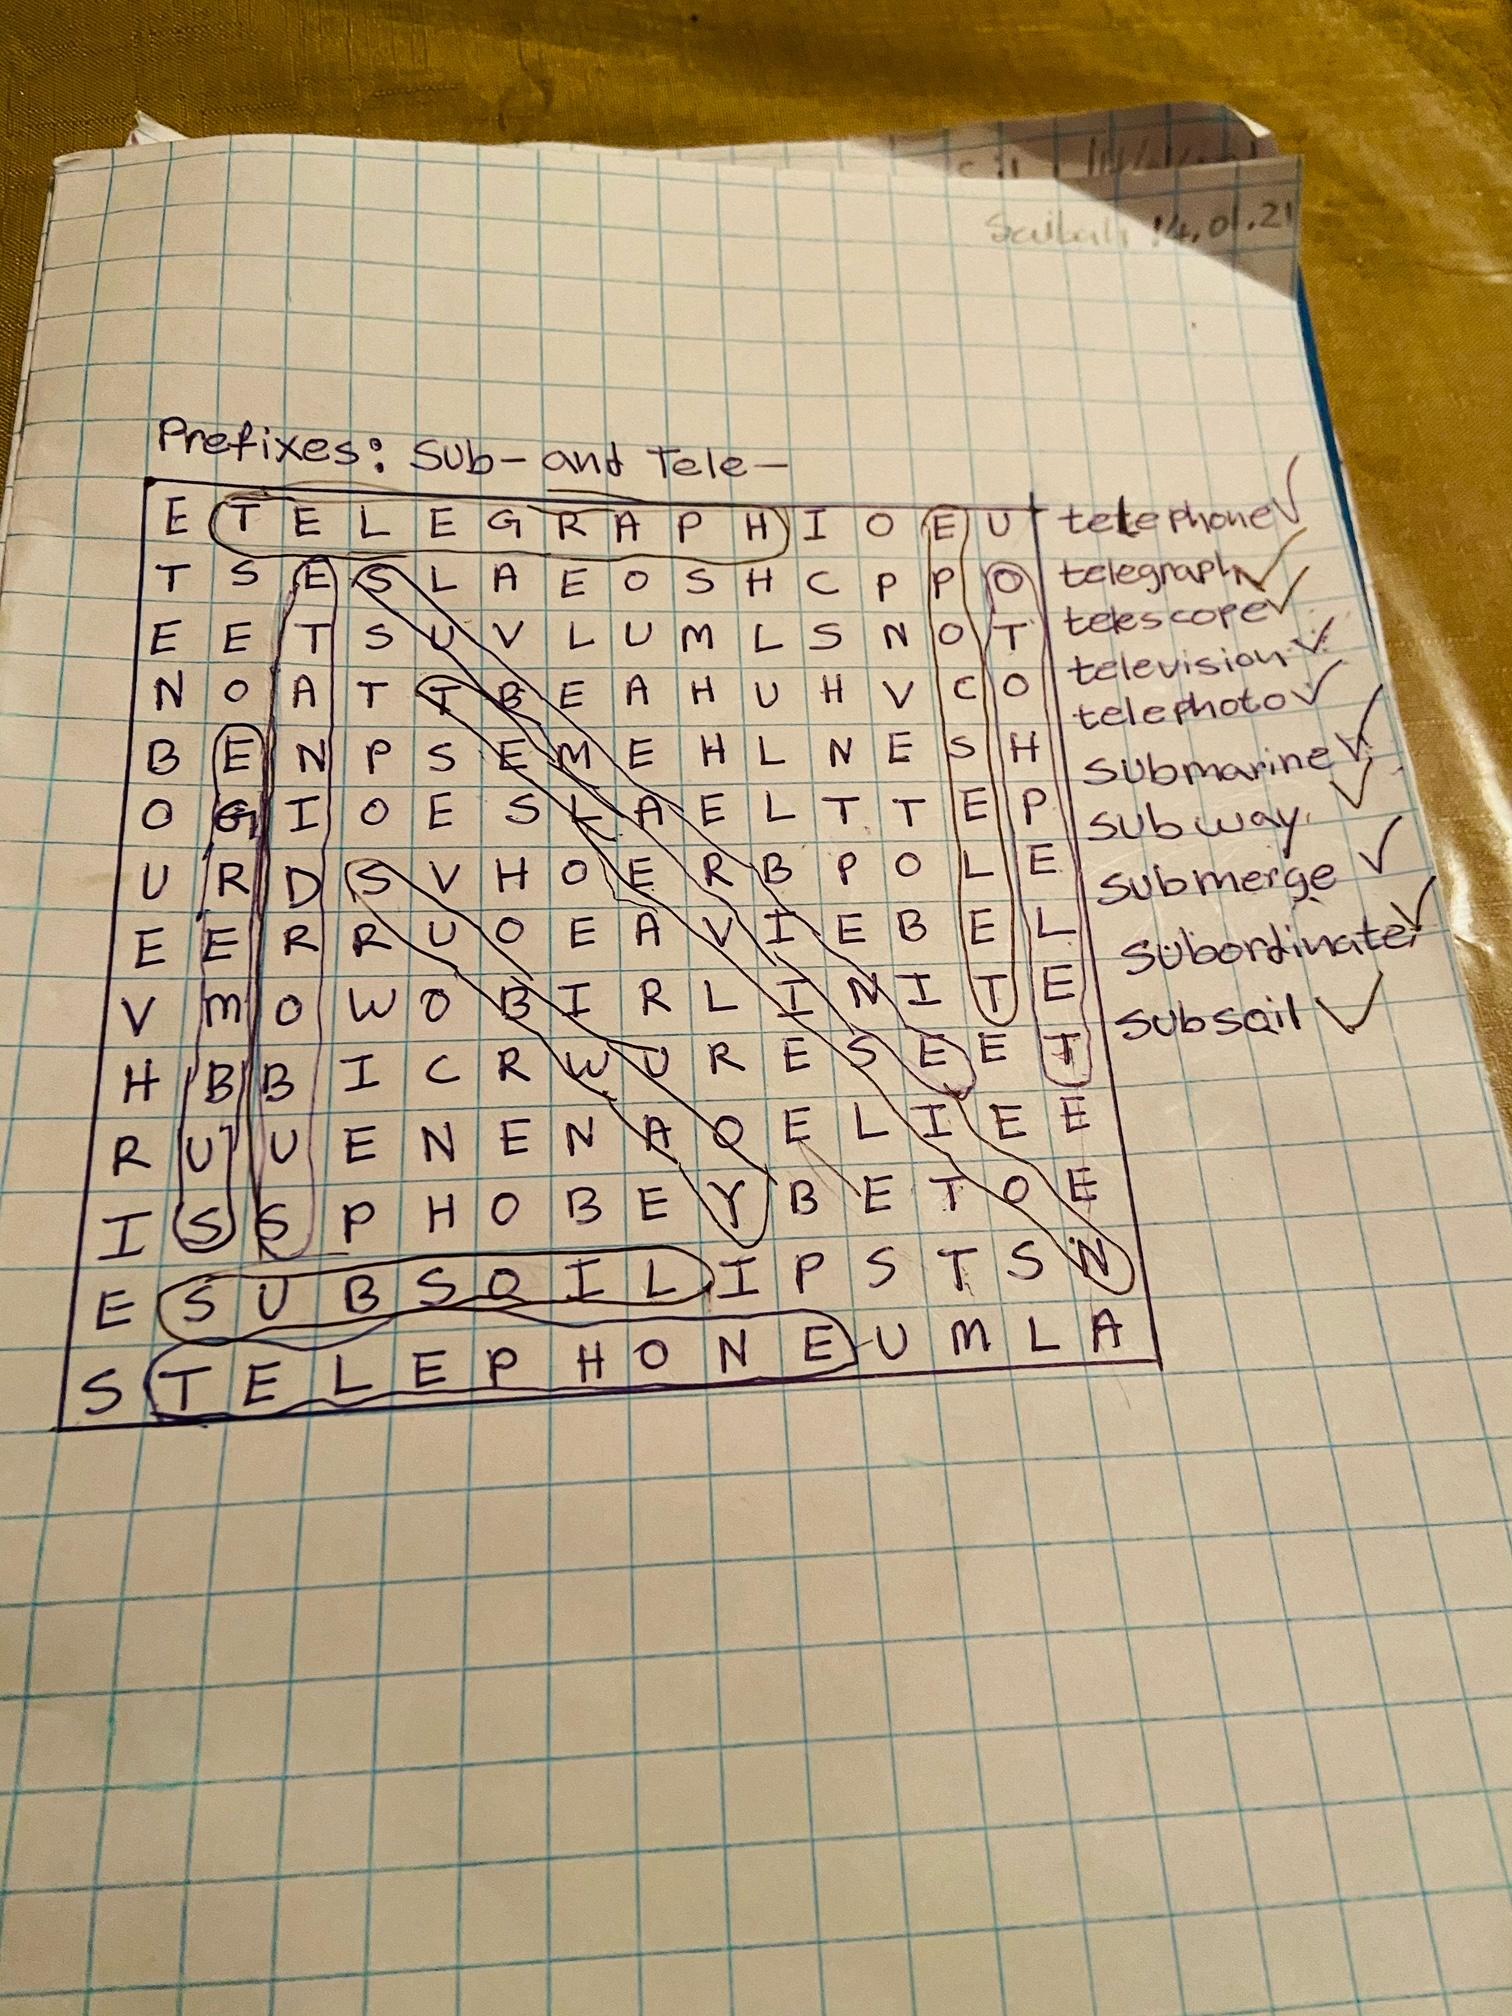 14.01.21
Prefixes: Sub- and Tele-
E T E L E G R A P H I O E U telephone
T S E S L A E O S H C P P O telegraph
E E T S U V L U M L S N O T telescope
N O A T T B E A H U H V C O television
telephoto
B E N P S E M E H L N E S H submarine
O G I O E S L A E L T T E P subway
U R D S V H O E R B P O L E submerge
E E R R U O E A V I E B E L subordinate
V M O W O B I R L I N I T E subsail
H B B I C R W U R E S E E T
R U U E N E N A O E L I E E
I S S P H O B E Y B E T O E
E S U B S O I L I P S T S N
S T E L E P H O N E U M L A